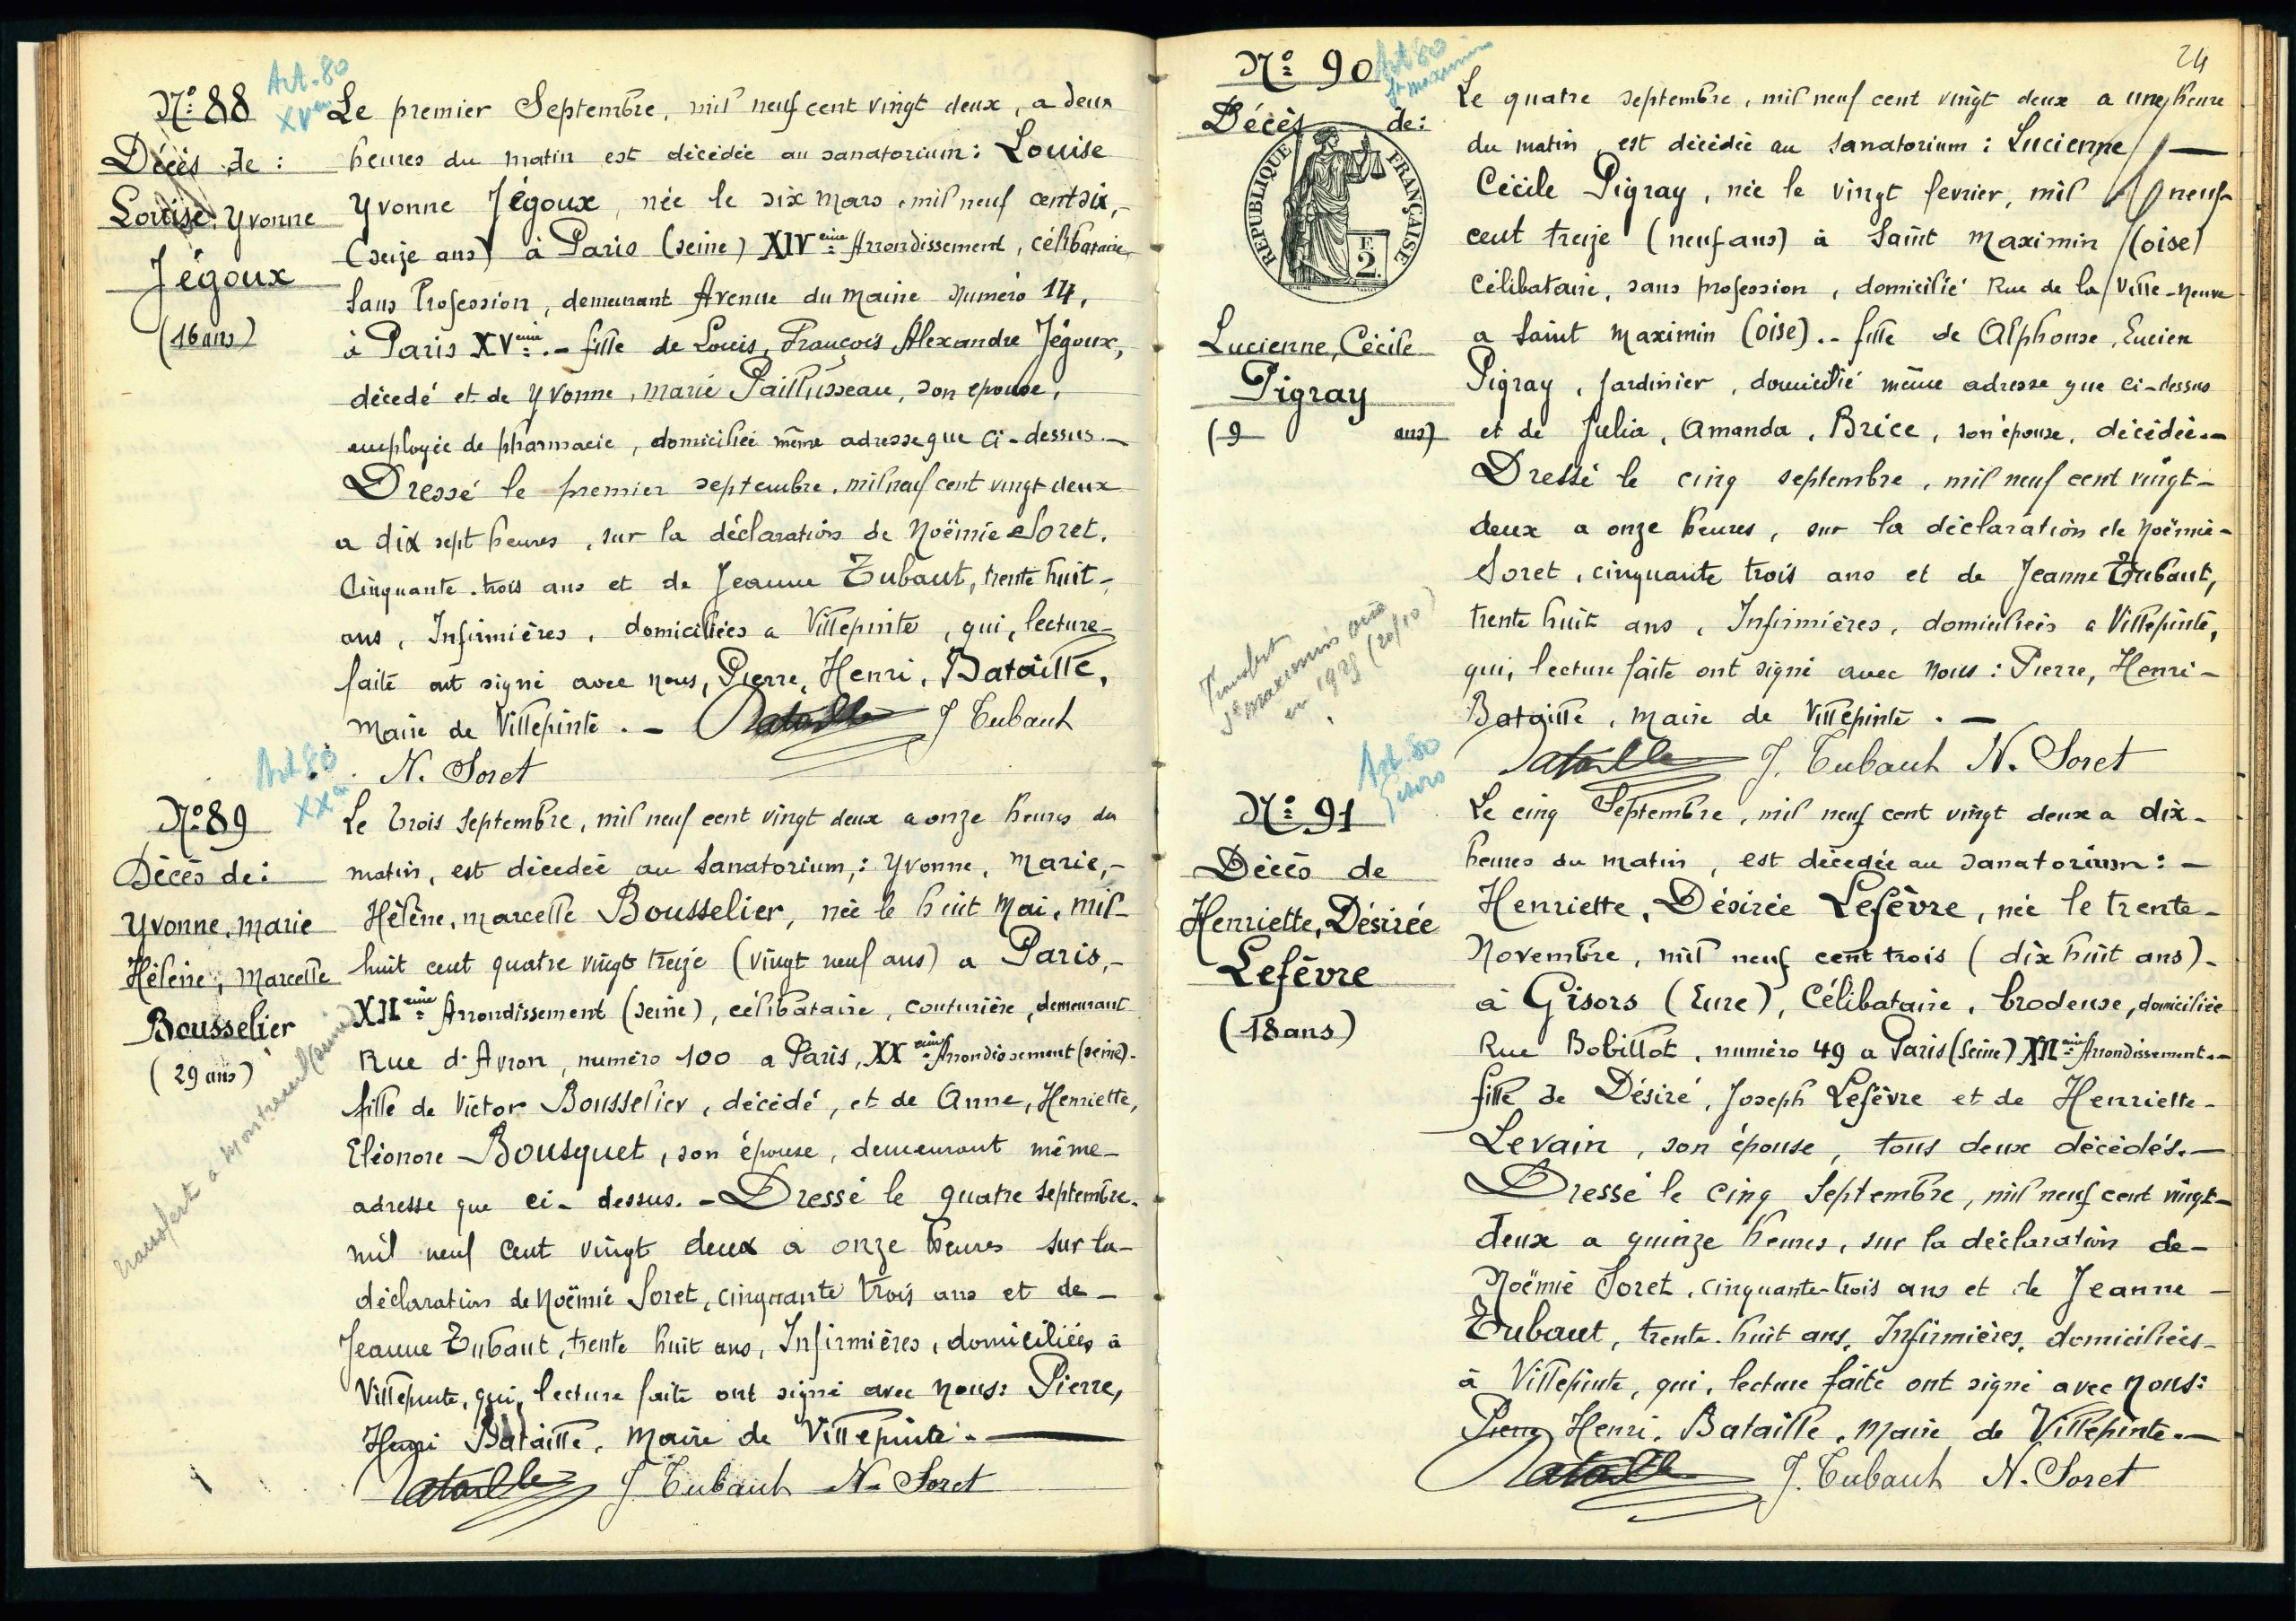 Nº 88
Art. 80
XVem
Décès de :
Louise, Yvonne
Jégoux
(16 ans)
Le premier Septembre, mil neuf cent vingt deux, a deux
heures du matin est décédée au sanatorium : Louise
Yvonne Jégoux, née le six mars, mil neuf cent six,-
(seize ans) à Paris (seine) XIVeme Arrondissement, célibataire
sans Profession, demeurant Avenue du Maine Numéro 14,
à Paris XVeme .- fille de Louis, François Alexandre Jégoux,
décedé et de Yvonne, Marie Paillusseau, son epouse,
employée de pharmacie, domiciliée même adresse que ci-dessus.-
Dressé le premier septembre, mil neuf cent vingt deux
a dix sept heures, sur la déclaration de Noëmie Soret,
Cinquante.trois ans et de Jeanne Tubaut, trente huit-
ans, Infirmières, domiciliées a Villepinte, qui, lecture-
faite ont signé avec nous, Pierre, Henri, Bataille,
Maire de Villepinte . - Bataille J Tubaut
N. Soret
Art 80
XXe
Nº 89
Décès de :
Yvonne, Marie
Hélène, Marcelle
Bousselier
(29 ans)
transfert a Montreuil
Le trois septembre, mil neuf cent vingt deux a onze heures du
matin, est décedée au Sanatorium, : Yvonne, Marie,-
Hélène, Marcelle Bousselier, née le huit Mai, mil-
huit cent quatre vingt treize (vingt neuf ans) a Paris,-
XIIeme Arrondissement (seine), célibataire, couturière, demeurant
Rue d'Avron, numéro 100 a Paris, XXeme Arrondissement (seine)-
fille de Victor Bousselier, décédé, et de Anne, Henriette,
Eléonore Bousquet, son épouse, demeurant même-
adresse que ci-dessus. - Dressé le quatre septembre-
mil neuf cent vingt deux a onze heures sur la-
déclaration de Noëmie Soret, cinquante trois ans et de-
Jeanne Tubaut, trente huit ans, Infirmières, domiciliées à
Villepinte, qui, lecture faite ont signé avec nous : Pierre,
Henri Bataille, Maire de Villepinte . -
Bataille J Tubaut N. Soret
24
Nº 90
Art 80
St maximin
Décès de :
REPUBLIQUE FRANÇAISE
F
2
Lucienne, Cécile
Pigray
(9 ans)
Transfert
St maximin oise
en 1929 (20/10)
Le quatre septembre, mil neuf cent vingt deux a une heure
du matin, est décédée au sanatorium : Lucienne -
Cécile Pigray, née le vingt fevrier, mil neuf-
cent treize (neuf ans) à Saint Maximin (oise)
Célibataire, sans profession, domicilié Rue de la Ville-Neuve
a Saint Maximin (oise) .- fille de Alphonse, Lucien
Pigray, Jardinier, domicilié même adresse que ci-dessus
et de Julia, Amanda, Brice, son épouse, décédée.-
Dressé le cinq septembre, mil neuf cent vingt-
deux a onze heures, sur la déclaration de Noëmie-
Soret, cinquante trois ans et de Jeanne Tubaut,
trente huit ans, Infirmières, domiciliées a Villepinte,
qui, lecture faite ont signé avec nous : Pierre, Henri-
Bataille, Maire de Villepinte . -
Bataille J. Tubaut N. Soret
Art. 80
Gisors
Nº 91
Décès de
Henriette, Désirée
Lefèvre
(18 ans)
Le cinq Septembre, mil neuf cent vingt deux a dix-
heures du matin, est décedée au sanatorium : -
Henriette, Désirée Lefèvre, née le trente-
Novembre, mil neuf cent trois (dix huit ans)-
à Gisors (Eure), Célibataire, brodeuse, domiciliée
Rue Bobillot, numéro 49 a Paris (Seine) XIIeme Arrondissement.-
fille de Désiré, Joseph Lefèvre et de Henriette-
Levain, son épouse, tous deux décédés.-
Dressé le cinq Septembre, mil neuf cent vingt-
deux a quinze heures, sur la déclaration de-
Noëmie Soret, cinquante-trois ans et de Jeanne -
Tubaut, trente.huit ans, Infirmières, domiciliées-
à Villepinte, qui, lecture faite ont signé avec nous :
Pierre Henri, Bataille, Maire de Villepinte.-
Bataille J. Tubaut N. Soret